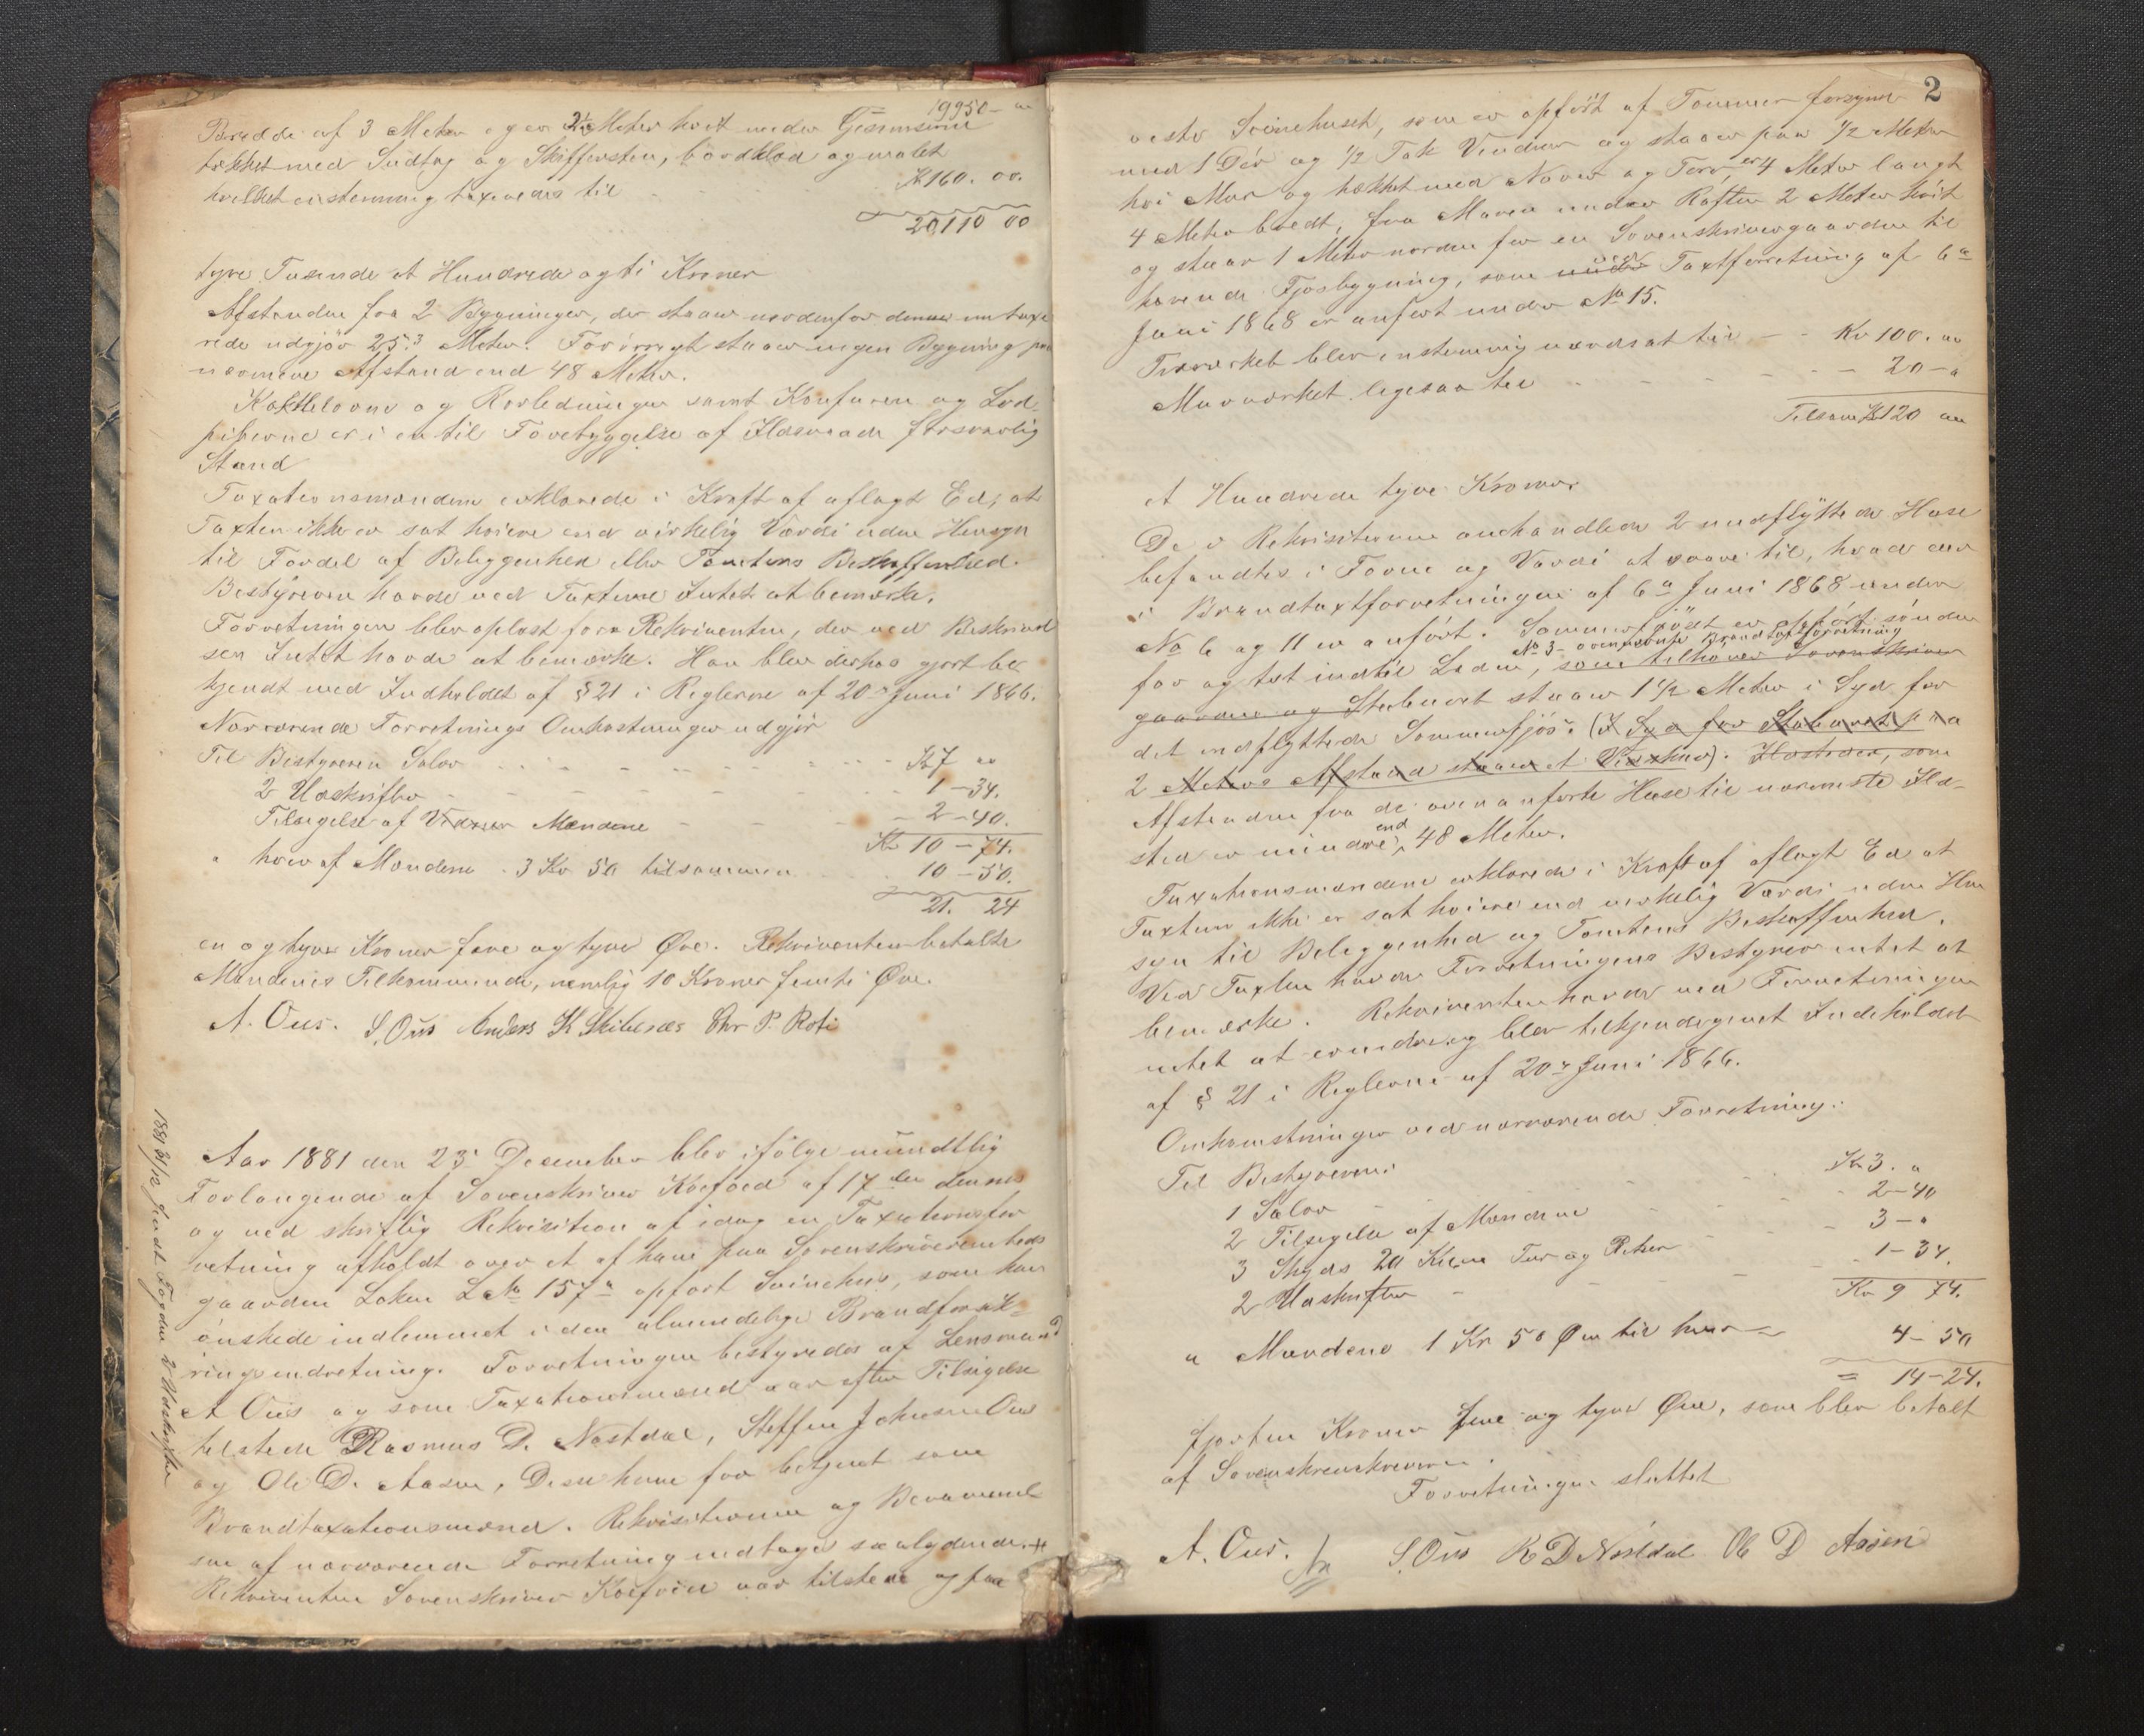 19950 - "
Bredde af 3 Meter og er 2½ Meter høit under Gesimsene
tækket med Sudtag og Skiffersten, bordklæd og malet
hvilket enstemmig taxeredes til Kr 160. 00.
20110 00
tyve Tusende et Hundrede og ti Kroner
Afstanden fra 2 Bygninger, der staar nordenfor denne nu taxe
rede udgjør 25.3 Meter. Forøvrigt staar ingen Bygning paa
nærmere Afstand end 48 Meter.
Kakkelovne og Rørledninger samt Komfuren og Lod-
piberne er i en til Forebyggelse af Ildsvaade forsvarlig
Stand
Taxationsmændene erklærede i Kraft af aflagt Ed, at
Taxten ikke er sat høiere end virkelig Værdi uden Hensyn
til Fordel af Beliggenhed eller Tomtens Beskaffenhed.
Bestyreren havde ved Taxterne Intet at bemærke.
Forretningen blev oplæst for Rekvirenten, der ved Beskrivel
sen Intet havde at bemærke. Han blev derhos gjort be
kjendt med Indholdet af § 21 i Reglerne af 20de Juni 1866.
Nærværende Forretnings Omkostninger udgjør
Til Bestyreren Salær Kr 7 "
2 Udskrifter 1 - 34.
Tilsigelse af Mændene 2 - 40.
Kr 10 - 74.
" hver af Mændene 3 Kr 50 tilsammen 10 - 50.
21. 24
en og tyve Kroner fire og tyve Øre. Rekvirenten betalte
Mændenes Tilkommende, nemlig 10 Kroner femti Øre.
A. Ous. S. Ous Anders K Skibenes Chr P. Roti
Aar 1881 den 23 December blev ifølge mundtlig
Forlangende af Sorenskriver Koefoed af 17de dennes
og ved skriftlig Rekvisition af idag en Taxationsfor
retning afholdt over et af ham paa Sorenskriverembeds
gaarden Løken L No 157a opført Svinehus, som han
ønskede indlemmet i den almindelige Brandforsik-
ringsindretning. Forretningen bestyredes af Lensmand
A Ous og som Taxationsmænd var efter Tilsigelse
tilstede Rasmus D. Nøstdal, Steffen Johnsen Ous
og Ole D. Aasen, Disse have før betjent som
Brandtaxationsmænd. Rekvisitionen og Berammel
sen af nærværende Forretning indtages saalydende #
Rekvirenten Sorenskriver Koefoed var tilstede og paa
1881 31/12 sendt Fogden 2 Udskrifter
2
viste Svinehuset, som er opført af Tømmer forsynet
med 1 Dør og ½ Fak Vinduer og staar paa ½ Meter
høi Mur og tækket med Næver og Torv, er 4 Meter langt
4 Meter bredt, fra Muren under Raften 2 Meter høit
og staar 1 Meter norden for en Sorenskrivergaarden til
hørende Fjøsbygning, som under Taxtforretning af 6te
Juni 1868 er anført under No 15.
Træværket blev enstemmig værdsat til Kr 100. "
Murværket ligesaa til 20 - "
Tilsam Kr 120 "
Et Hundrede tyve Kroner
De i Rekvisitionen omhandlede 2 indflyttede Huse
befandtes i Forme og Værdi at svare til, hvad der
i Brandtaxtforretningen af 6te Juni 1868 under
No 6 og 11 er anført. Sommerfjøset er opført sønden
No 3 - ovennævnte Brandtaxtforretning
for og tæt indtil Laden, som tilhører Sorenskriver
gaarden og Stabburet staar 1½ Meter i Syd for
det indflyttede Sommerfjøs. (I Syd for Stabburet paa
2 Meters Afstand staar et Vedskur). Ildstedet, som
Afstanden fra de ovenanførte Huse til nærmeste Ild-
sted er mindre end 48 Meter.
Taxationsmændene erklærede i Kraft af aflagt Ed at
Taxterne ikke er sat høiere end virkelig Værdi uden Hen
syn til Beliggenhed og Tomtens Beskaffenhed.
Ved Taxten havde Forretningens Bestyrer intet at
bemærke. Rekvirenten havde ved Forretningen
intet at erindre og blev tilkjendegivet Indeholdet
af § 21 i Reglerne af 20de Juni 1866.
Omkomstninger ved nærværende Forretning:
Til Bestyreren:
1 Salær Kr 3. "
2 Tilsigelse af Mændene 2 - 40
3 Skyds 20 Tur og Retur 3 - "
2 Udskrifter 1 - 34.
Kr 9 74.
" Mændene 1 Kr 50 Øre til hver 4 - 50
= 14 - 24.
fjorten Kroner fire og tyve Øre, som blev betalt
af Sorenskrenskriveren.
Forretningen sluttet
A. Ous. S. Ous R D Nøstdal Ole D Aasen